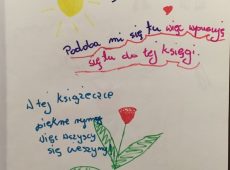 Podoba mi się tu więc wpisuję
się tu do tej księgi.
W tej książeczce
piękne rymy
więc wszyscy
się cieszymy